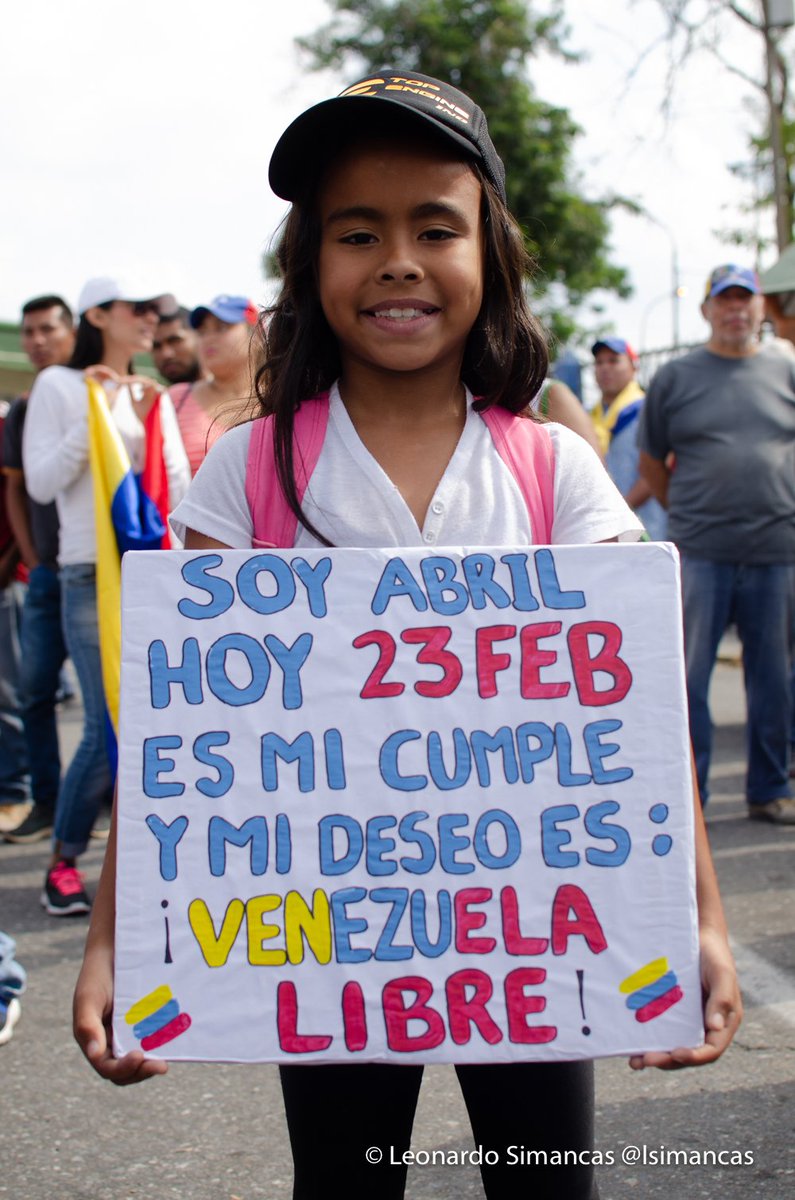 TOP
ENGINE
IND
SOY ABRIL
HOY 23 FEB
ES MI CUMPLE
Y MI DESEO ES:
¡VENEZUELA
LIBRE!
© Leonardo Simancas @lsimancas